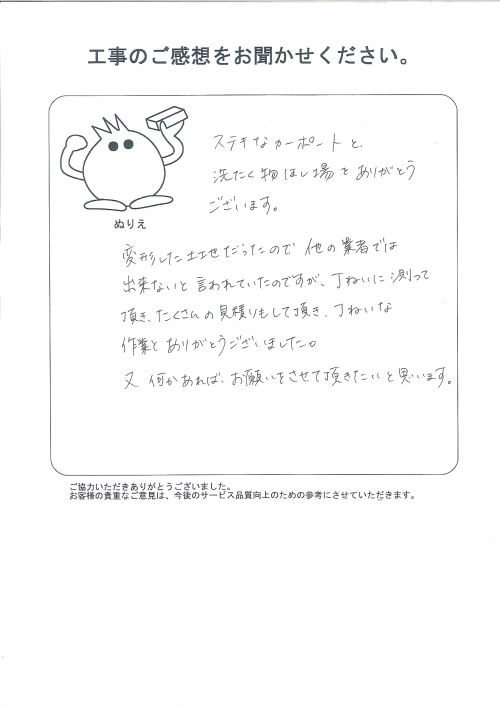 工事のご感想をお聞かせください。
ステキなカーポートと、
洗たく物ほし場をありがとう
ございます。
ぬりえ
変形した土地だったので 他の業者では
出来ないと言われていたのですが、丁ねいに測って
頂き、たくさんの見積りもして頂き、丁ねいな
作業と ありがとうございました。
又 何かあれば、お願いをさせて頂きたいと思います。
ご協力いただきありがとうございました。
お客様の貴重なご意見は、今後のサービス品質向上のための参考にさせていただきます。